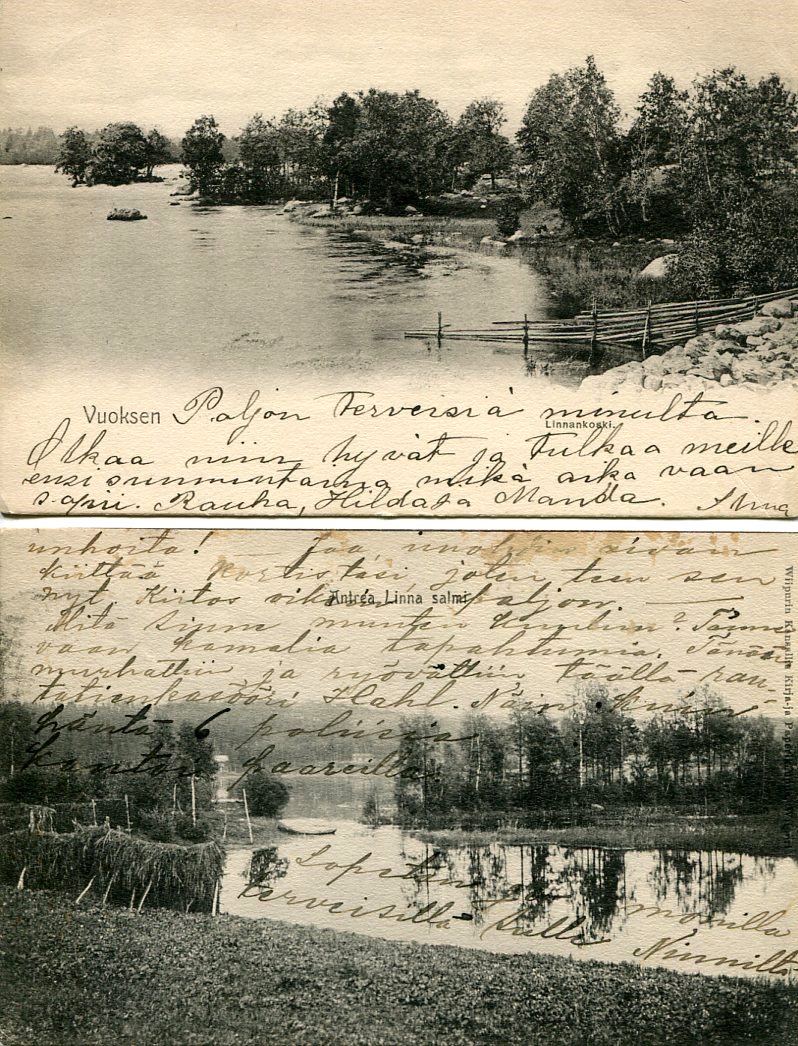 Vuoksen Paljon terveisiä minulta
Linnankoski.
Olkaa niin hyvät ja tulkaa meille
ensi sunnuntaina mikä aika vaan
sopii. Rauha, Hilda ja Manda.
unhoita! — Jaa, unohdin aivan
kiittää kortistasi, joten teen sen
nyt. Kiitos paljon. —
Antrea, Linna salmi.
Mitä sinne muuten kuuluu?
vaan kamalia tapahtumia. Tänään
murhattiin ja ryövättiin täällä rau-
tatienkasööri Hahl. Näin kuin
häntä 6 poliisia
kantoi paareilla.
Lopetan
terveisillä Sulle monilla
Ninniltä
Wiipurin Kansallis Kirja- ja